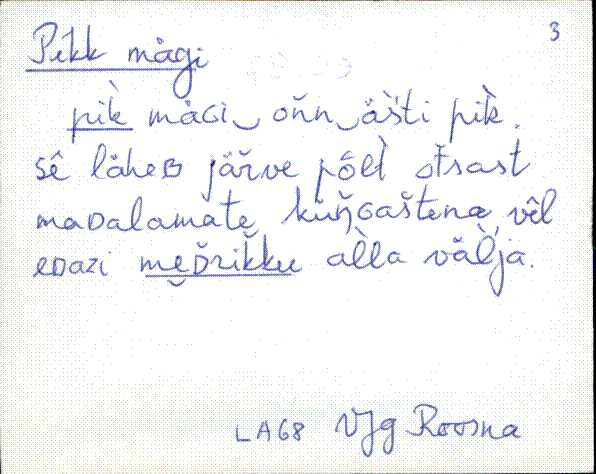 3
Pikk mägi
pik̀ mäɢi‿oňn‿äš̌ti pik̀.
sê läheʙ järve pǭlt otsast
maᴅalamate küŋ̌ɢaštenạ, vêl
eᴅazi mẹᴅ̌rik̆ku al̀la väl̀ja.
LA68 VJg Roosna